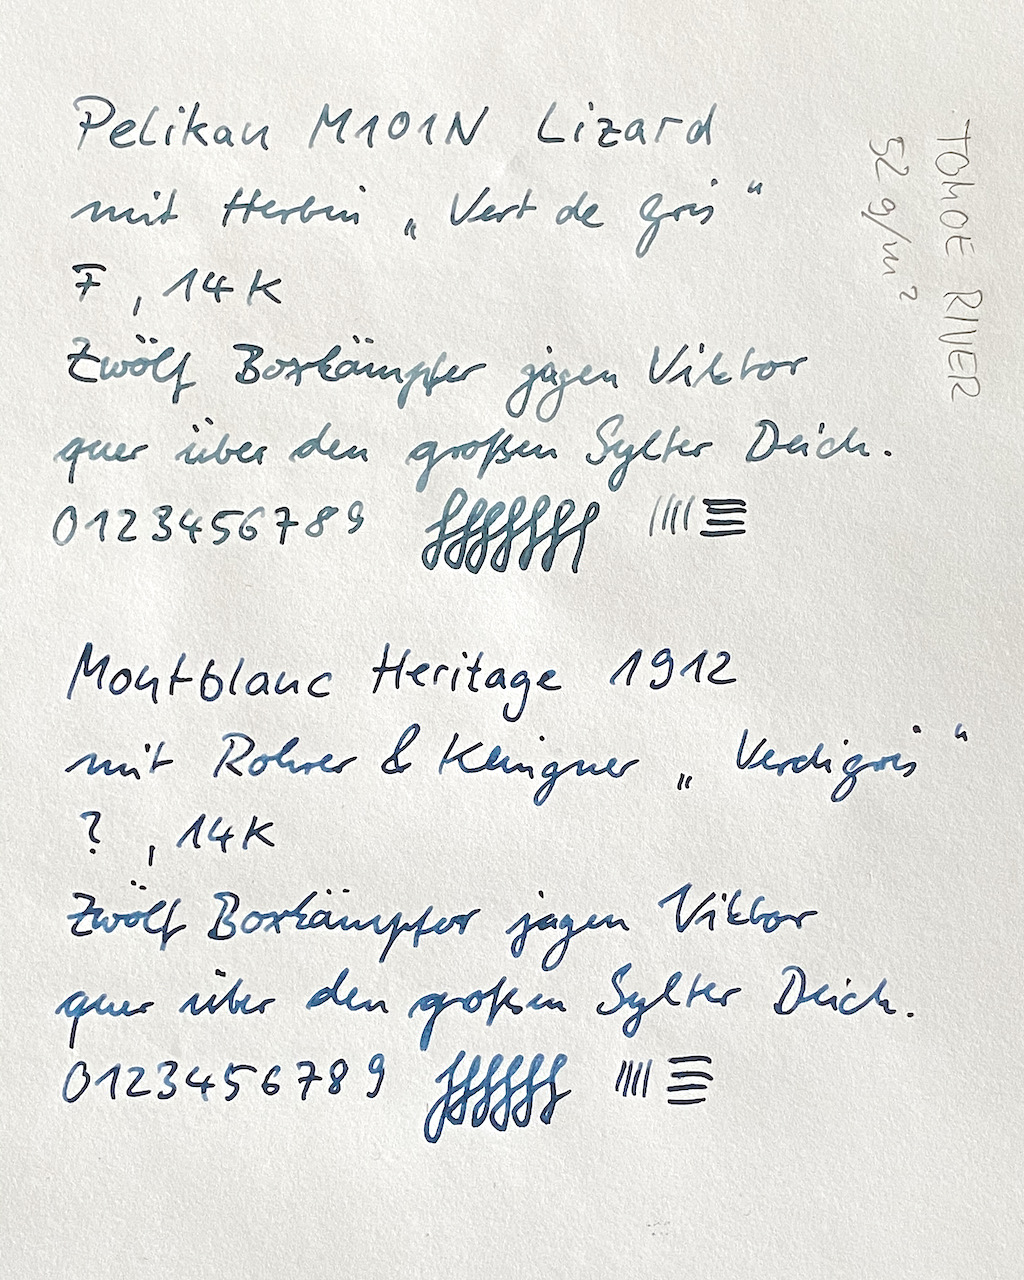 Pelikan M101N Lizard
mit Herbin „Vert de Gris“
F, 14K
Zwölf Boxkämpfer jagen Viktor
quer über den großen Sylter Deich.
0123456789
Montblanc Heritage 1912
mit Rohrer & Klingner „Verdigris“
?, 14K
Zwölf Boxkämpfer jagen Viktor
quer über den großen Sylter Deich.
0123456789
TOMOE RIVER
52 g/m²